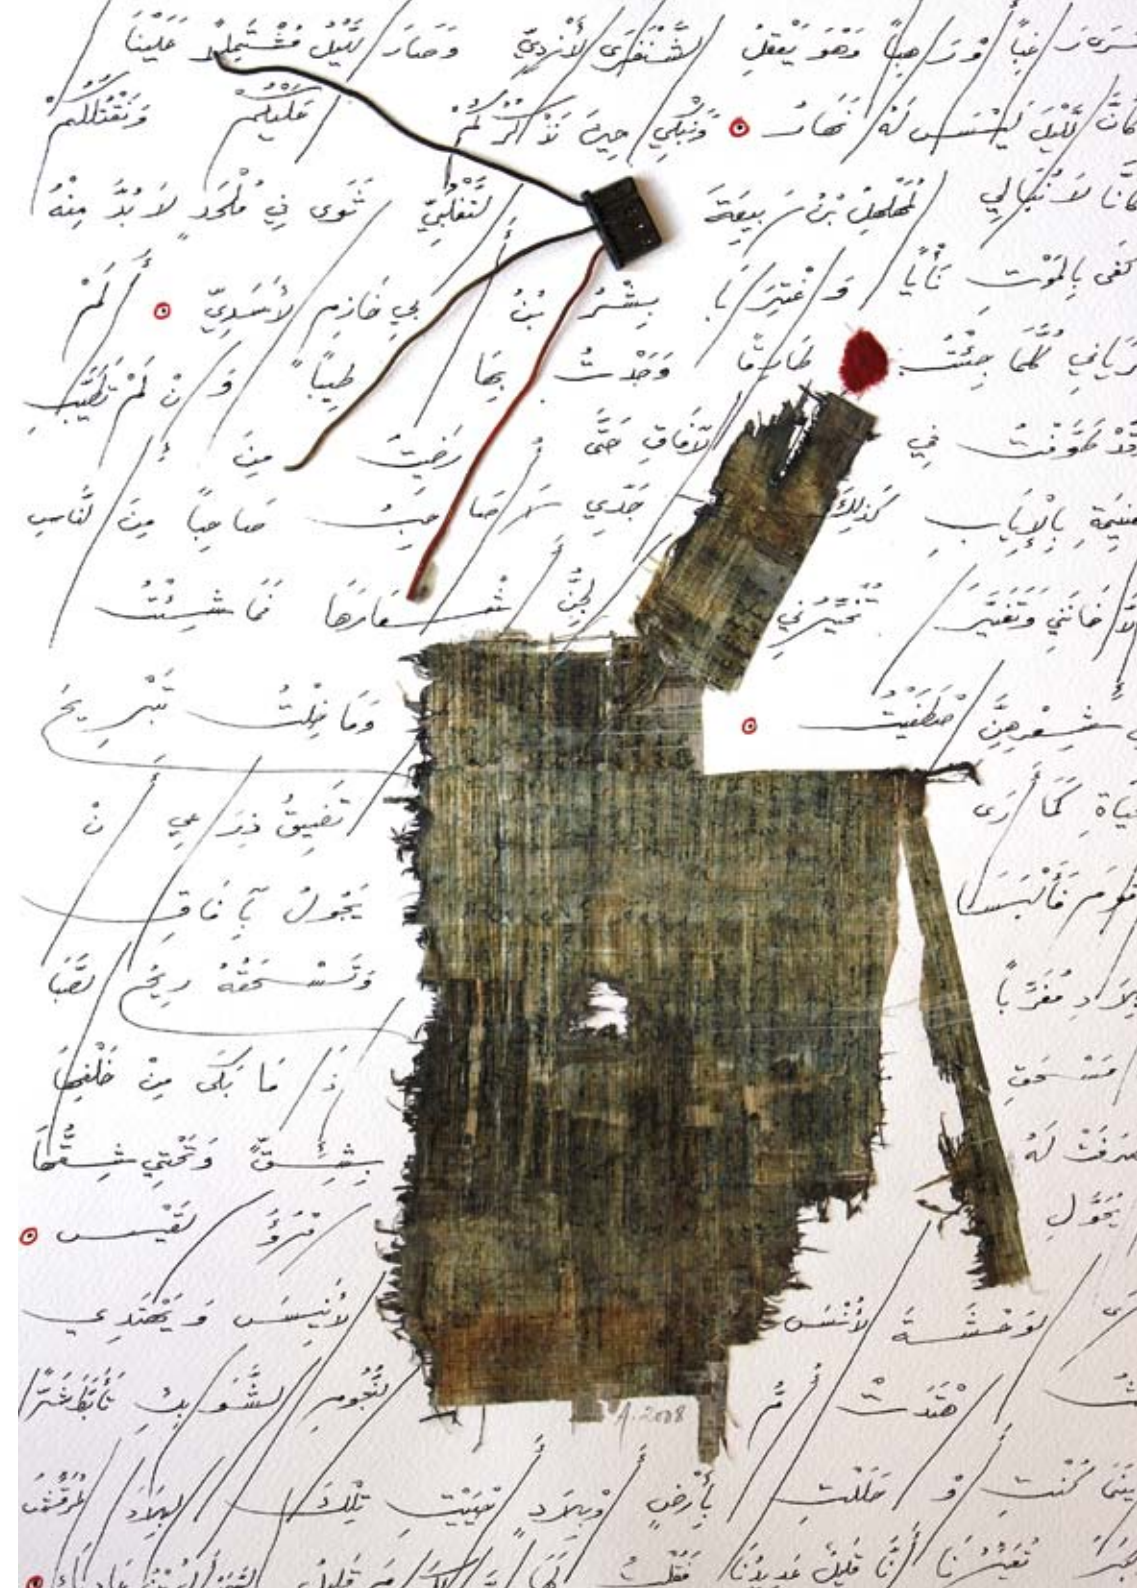 وَهْوَ يَعْقِلُ الشَّنْفَرَى الْأَزْدِيّ وَصَارَ لَيْلُ مُشْتَمِلًا عَلَيْنَا
كَأَنَّ اللَّيْلَ لَيْسَ لَهُ نَهَارُ وَنَبْكِي حِينَ نَذْكُرُكُمْ عَلَيْكُمْ وَنَقْتُلُكُمْ
كَأَنَّا لَا نُبَالِي الْمُهَلْهِلُ بْنُ رَبِيعَةَ التَّغْلَبِيّ ثَوَى فِي مُلْحَدٍ لَا بُدَّ مِنْهُ
كَفَى بِالْمَوْتِ نَأْيًا وَاغْتِرَابَا بِشْرُ بْنُ أَبِي خَازِمٍ الْأَسَدِيّ أَلَمْ
تَرَيَانِي كُلَّمَا جِئْتُ طَارِقًا وَجَدْتُ بِهَا طِيبًا وَإِنْ لَمْ تَطَيَّبِ
طَوَّفْتُ فِي الْآفَاقِ حَتَّى رَضِيتُ مِنَ
الْغَنِيمَةِ بِالْإِيَابِ كَذَلِكَ جَدِّي مَا أُصَاحِبُ صَاحِبًا مِنَ النَّاسِ
إِلَّا خَانَنِي وَتَغَيَّرَ تُخَيِّرُنِي الْجِنُّ أَشْعَارَهَا فَمَا شِئْتُ
شِعْرِهِنَّ اصْطَفَيْتُ وَمَا خِلْتُ تَبْرِيحَ
الْحَيَاةِ كَمَا أَرَى تَضِيقُ ذِرَاعِي أَنْ
أَقُومَ فَأَلْبَسَا يَجُولُ بِآفَاقِ
الْبِلَادِ مُغَرِّبًا وَتَسْحَقُهُ رِيحُ الصَّبَا
مَسْحَقِ إِذَا مَا بَكَى مِنْ خَلْفِهَا
انْصَرَفَتْ لَهُ بِشِقٍّ وَتَحْتِي شِقُّهَا
يُحَوَّلِ امْرُؤُ الْقَيْسِ
يَرَى الْوَحْشَةَ الْأُنْسَ الْأَنِيسَ وَيَهْتَدِي
اهْتَدَتْ أُمُّ النُّجُومِ الشَّوَابِكِ تَأَبَّطَ شَرًّا
أَيْنَمَا كُنْتِ أَوْ حَلَلْتِ بِأَرْضٍ أَوْ بِلَادٍ أَحْيَيْتِ تِلْكَ الْبِلَادَ الْمُرَقِّشُ
تُعَيِّرُنَا أَنَّا قَلِيلٌ عَدِيدُنَا فَقُلْتُ لَهَا إِنَّ الْكِرَامَ قَلِيلُ
A. 2008